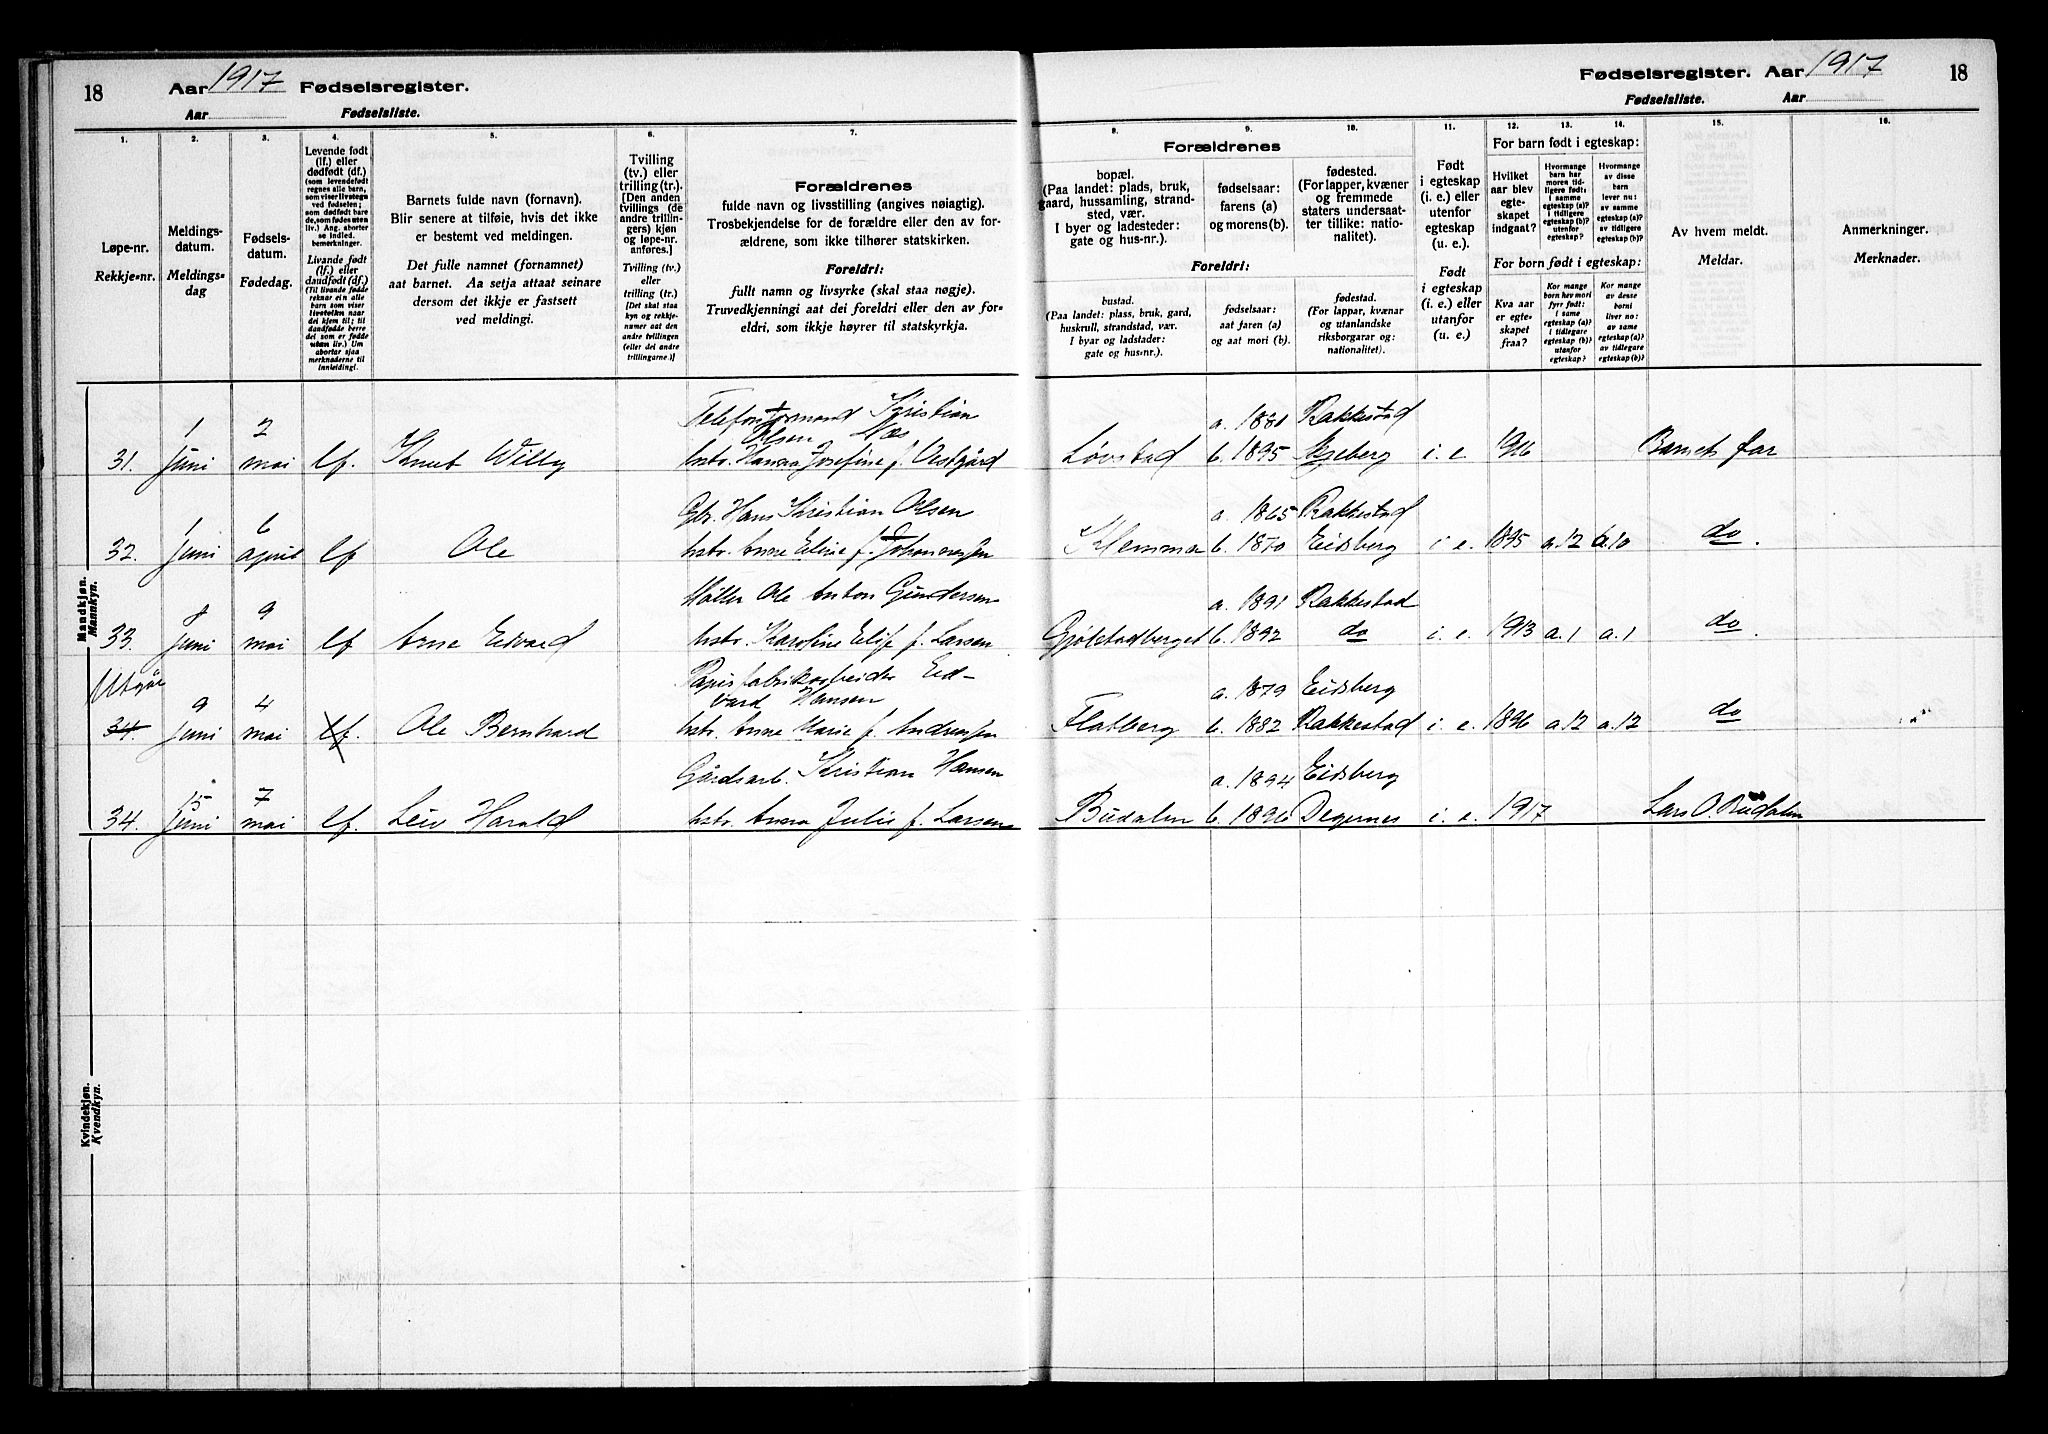 18 Aar 1917 Fødselsregister.
Aar Fødselsliste.
Fødselsregister. Aar 1917 18
Fødselsliste. Aar
1. 2. 3. 4. 5. 6. 7.
8. 9. 10. 11. 12. 13. 14. 15. 16.
Løpe-nr.
Rekkje-nr.
Meldings-
datum.
Meldings-
dag
Fødsels-
datum.
Fødedag.
Levende født
(lf.) eller
dødfødt (df.)
(som levendefødt
regnes alle barn,
som viser livstegn
ved fødselen;
som dødfødt bare
de, som fødes uten
liv.) Ang. aborter
se indled.
bemerkninger.
Livande født
(lf.) eller
daudfødt (df.)
(Til livande fødde
reknar ein alle
barn som viser
livsteikn naar
dei kjem til; til
daudfødde berre
dei som er fødde
utan liv.) Um
abortar sjaa
merknaderne til
innleiding.
Barnets fulde navn (fornavn).
Blir senere at tilføie, hvis det ikke
er bestemt ved meldingen.
Det fulle namnet (fornamnet)
aat barnet. Aa setja attaat seinare
dersom det ikkje er fastsett
ved meldingi.
Tvilling
(tv.) eller
trilling (tr.).
[Den anden
tvillings (de
andre trillin-
gers) kjøn
og løpe-nr.
anføres.]
Tvilling (tv.)
eller
trilling (tr.)
[Det skal staa
kyn og rekkje-
numer aat den
andre tvillingen
(eller dei andre
trillingarne.)]
Forældrenes
fulde navn og livsstilling (angives nøiagtig).
Trosbekjendelse for de forældre eller den av for-
ældrene, som ikke tilhører statskirken.
Foreldri:
fullt namn og livsyrke (skal staa nøgje).
Truvedkjenningi aat dei foreldri eller den av for-
eldri, som ikkje høyrer til statskyrkja.
Forældrenes
bopæl.
(Paa landet: plads, bruk,
gaard, hussamling, strand-
sted, vær.
I byer og ladesteder:
gate og hus-nr.).
fødselsaar:
farens (a)
og morens (b).
fødested.
(For lapper, kvæner
og fremmede
staters undersaat-
ter tillike: natio-
nalitet).
Foreldri:
bustad.
(Paa landet: plass, bruk, gard,
huskrull, strandstad, vær.
I byar og ladstader:
gate og hus-nr.).
fødselsaar:
aat faren (a)
og aat mori (b).
fødestad.
(For lappar, kvænar
og utanlandske
riksborgarar og:
nationalitet).
Født
i egteskap
(i. e.) eller
utenfor
egteskap
(u. e.).
Født
i egteskap
(i. e.) eller
utanfor
(u. e.).
For barn født i egteskap:
Hvilket
aar blev
egte-
skapet
indgaat?
Hvormange
barn har
moren tid-
ligere født:
i samme
egteskap (a)?
i tidligere
egteskap (b)?
utenfor
egteskap?
Hvormange
av disse
barn
lever nu:
av samme
egteskap (a)?
av tidligere
egteskap (b)?
For born født i egteskap:
Kva aar
er egte-
skapet
fraa?
Kor mange
born hev mori
fyrr født:
i same
egteskap (a)?
i tidlegare
egteskap (b)?
utanfor
egteskap?
Kor mange
av desse
borni
liver no:
av same
egteskap (a)?
av tidlegare
egteskap (b)?
Av hvem meldt.
Meldar.
Anmerkninger.
Merknader.
Mandkjøn.
Mannkyn.
1 2 Telefonformand Kristian a. 1881 Rakkestad
Olsen Næs
31. juni mai lf. Knut Willy hstr. Hanna Josefine f. Løvstad b. 1895 i. e. 1916 Barnets far
1 6 Gbr. Hans Kristian Olsen a. 1865 Rakkestad
32. juni april lf Ole hstr. Anne Eline f. Johannessen Klemma b. 1870 Eidsberg i. e. 1895 a.12 a.10 do.
8 9 Møller Ole Anton Gundersen a. 1891 Rakkestad
33. juni mai lf Arne Edvard hstr. Karoline Elise f. Larsen Gjølstadberget b. 1892 do i. e. 1913 a.1 a.1 do.
Utgår 9 4 Papirfabrikarbeider Ed- a. 1879 Eidsberg
vard Hansen
34. juni mai lf. Ole Bernhard hstr. Anne Marie f. Andresen Flatberg b. 1882 Rakkestad i. e. 1896 a.12 a.12 do
15 7 Gårdsarb. Kristian Hansen a. 1894 Eidsberg
34. juni mai lf. Leiv Harald hstr. Anna Julie f. Larsen Budalen b. 1896 Degernes i. e. 1917 Lars O. Budalen
Kvindekjøn.
Kvendkyn.